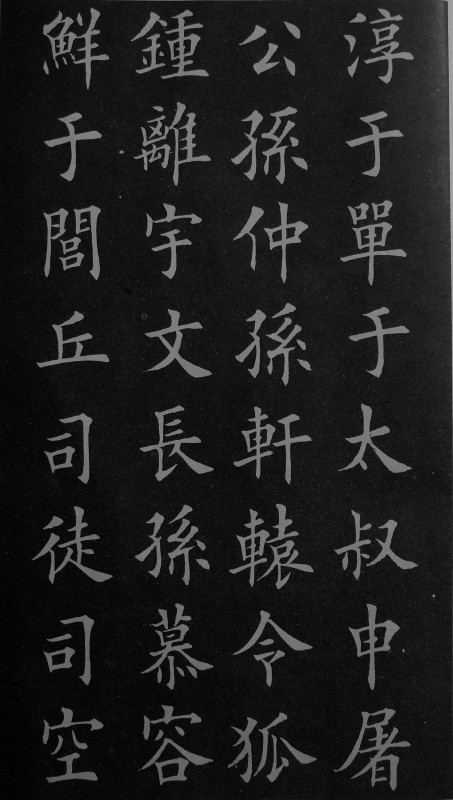 淳于單于太叔申屠
公孫仲孫軒轅令狐
鍾離宇文長孫慕容
鮮于閭丘司徒司空